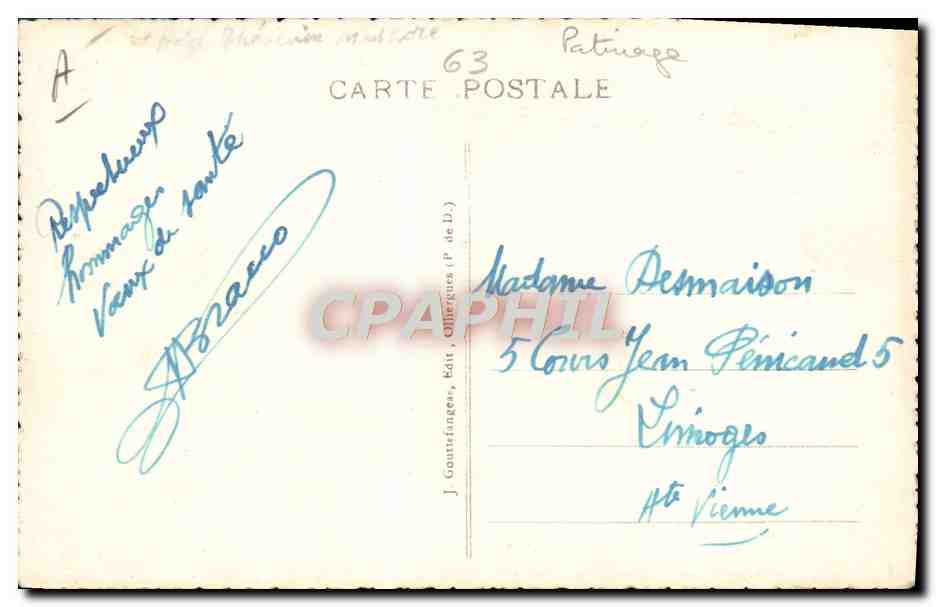 A
63
Patinage
CARTE POSTALE
Respectueux
hommages
Vœux de santé
Bracco
J. Gouttefangeas, Édit., Olliergues (P. de D.)
CPAPHIL
Madame Desmaison
5 Cours Jean Pénicaud 5
Limoges
Hte Vienne